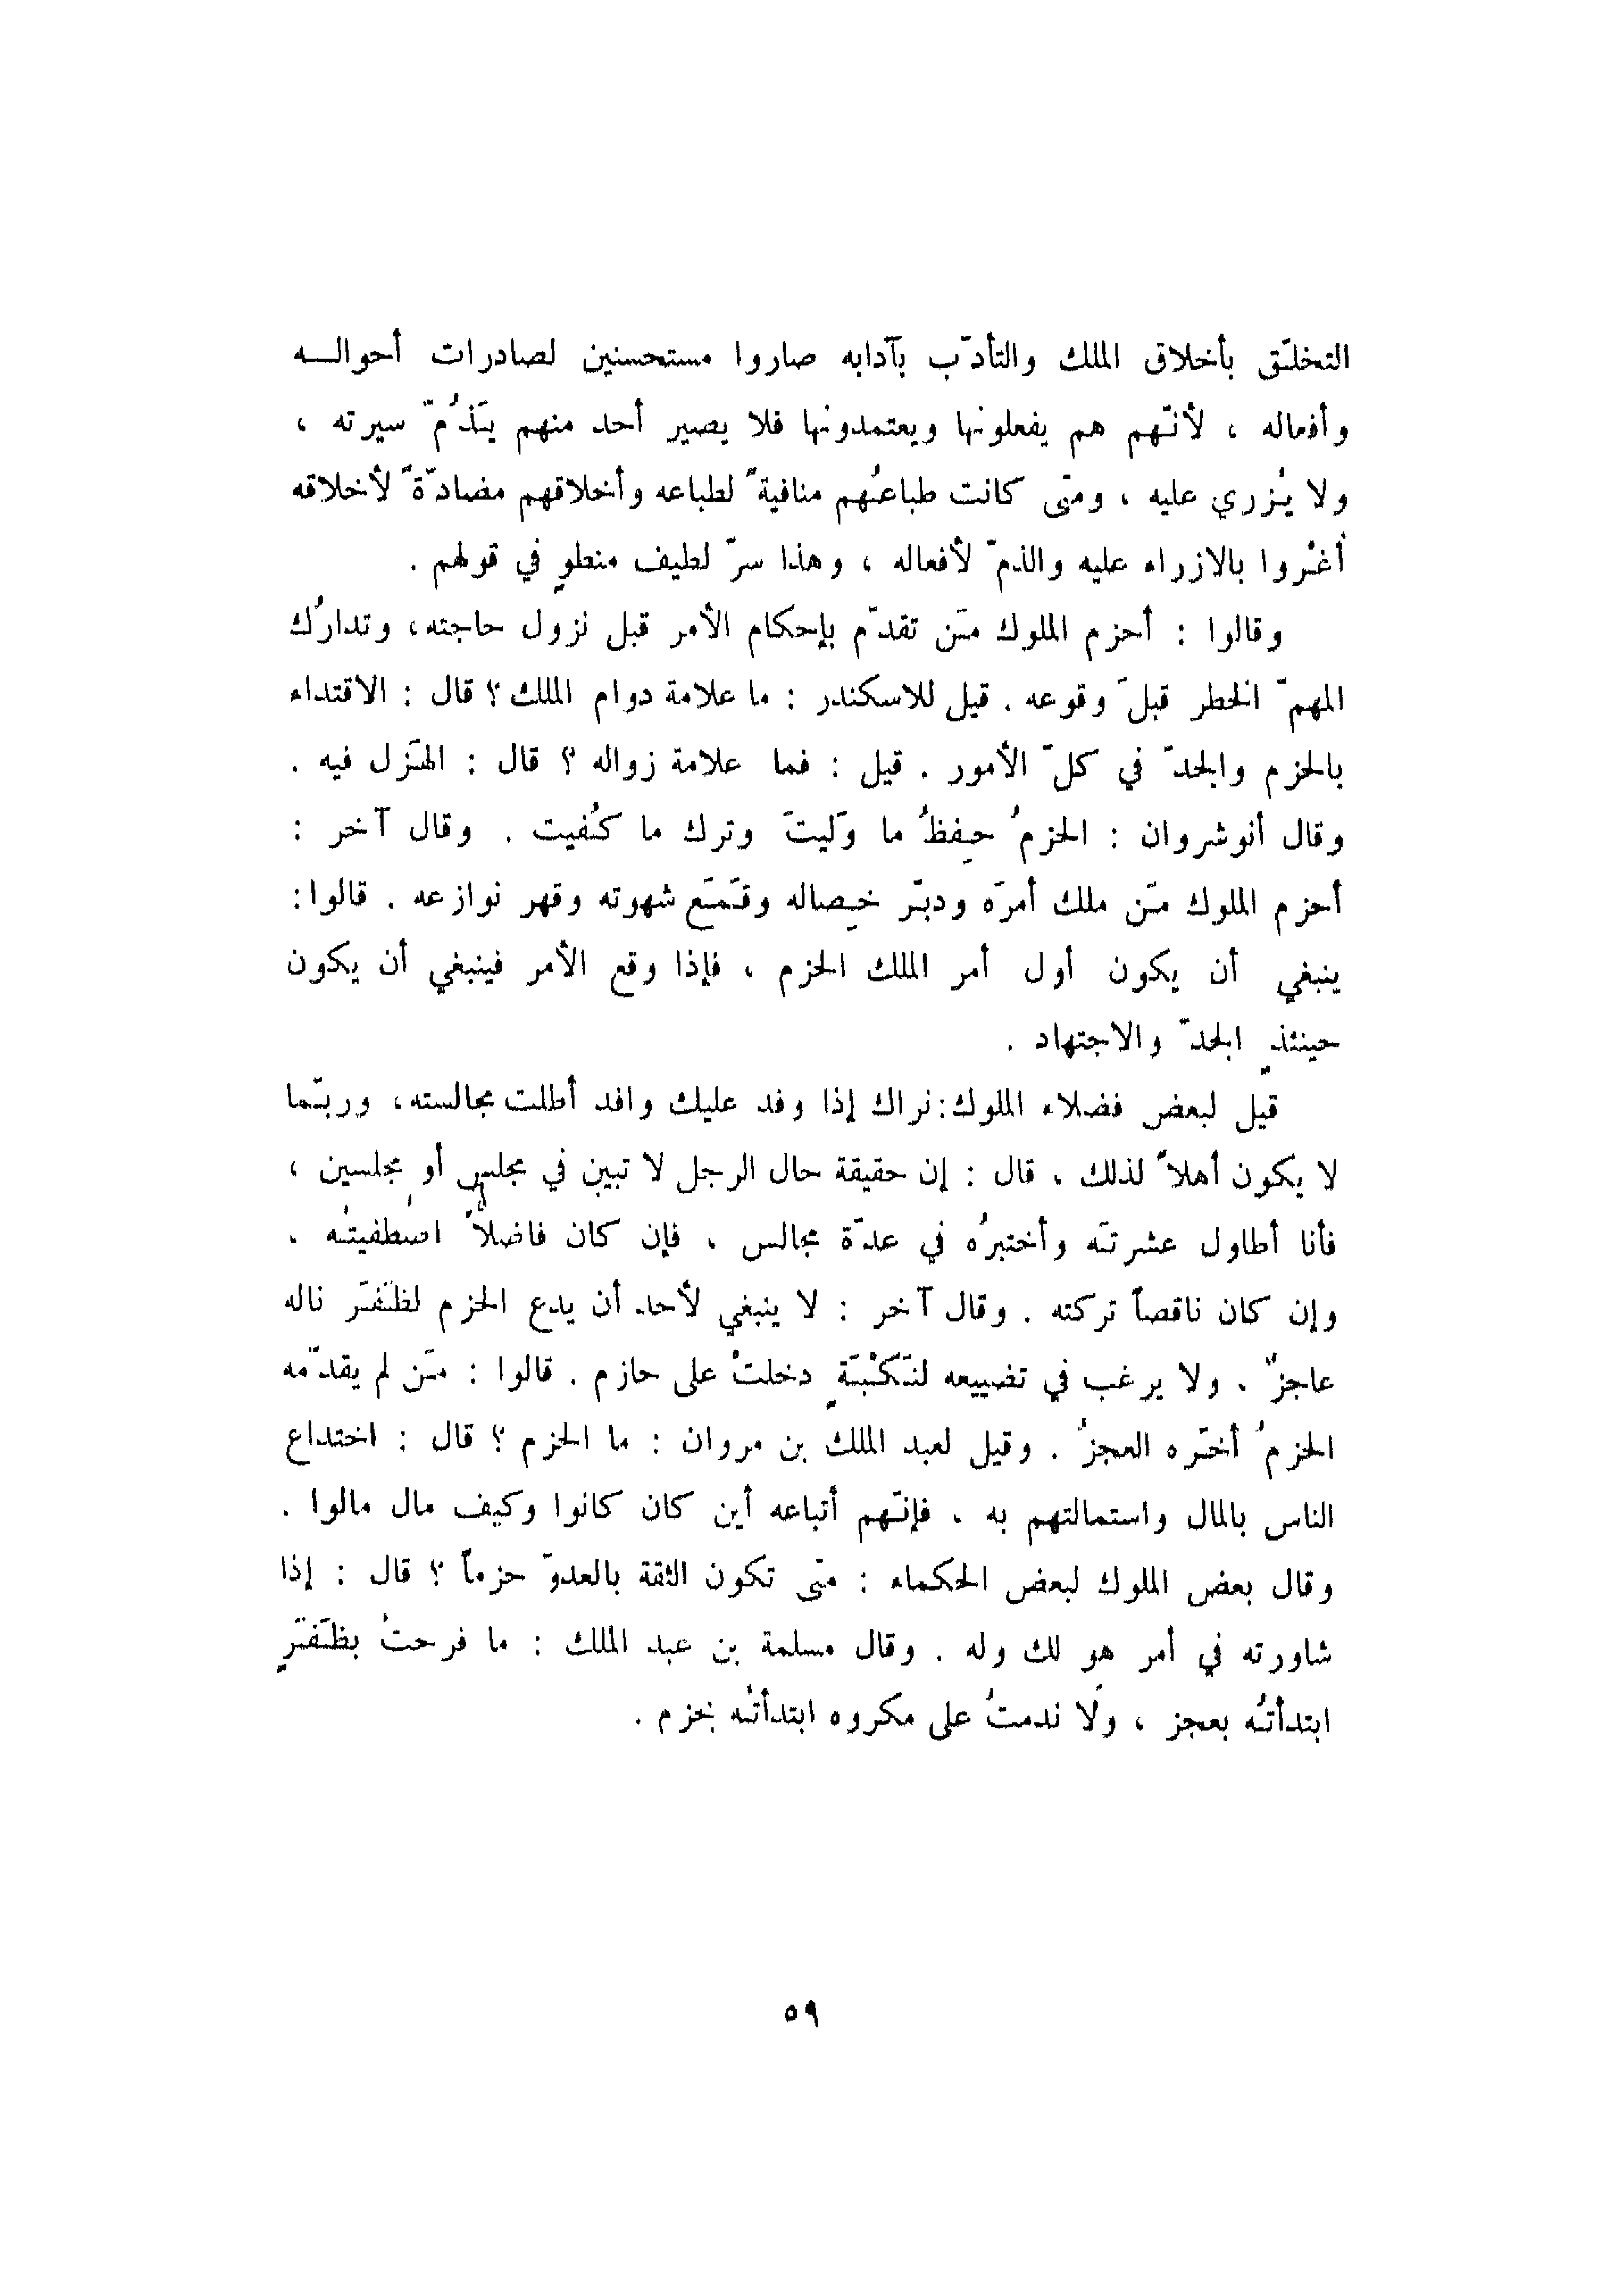 التخلّق بأخلاق الملك والتأدّب بآدابه صاروا مستحسنين لصادرات أحوالـــه
وأفعاله ، لأنّهم هم يفعلونها ويعتمدونها فلا يصير أحد منهم يَذُمّ سيرته ،
ولا يُزري عليه ، ومتى كانت طباعُهم منافيةً لطباعه وأخلاقهم مضادّةً لأخلاقه
أُغْروا بالازراء عليه والذمّ لأفعاله ، وهذا سرّ لطيف منطوٍ في قولهم .
وقالوا : أحزم الملوك مَن تقدّم بإحكام الأمر قبل نزول حاجته، وتداركُ
المهمّ الخطر قبلَ وقوعه . قيل للاسكندر : ما علامة دوام الملك ؟ قال : الاقتداء
بالحزم والجدّ في كلّ الأمور . قيل : فما علامة زواله ؟ قال : الهَزل فيه .
وقال أنوشروان : الحزمُ حِفظُ ما وَليتَ وترك ما كُفيت . وقال آخر :
أحزم الملوك مَن ملك أمرَه ودبّر خِصاله وقَمَع شهوته وقهر نوازعه . قالوا :
ينبغي أن يكون أول أمر الملك الحزم ، فإذا وقع الأمر فينبغي أن يكون
حينئذٍ الجدّ والاجتهاد .
قيل لبعض فضلاء الملوك : نراك إذا وفد عليك وافد أطلت مجالسته، وربّما
لا يكون أهلاً لذلك ، قال : إن حقيقة حال الرجل لا تبين في مجلسٍ أو مجلسين ،
فأنا أطاول عشرتَه وأختبرُه في عدّة مجالس ، فإن كان فاضلاً اصطفيتُه .
وإن كان ناقصاً تركته . وقال آخر : لا ينبغي لأحد أن يدع الحزم لظَفَر ناله
عاجزٌ . ولا يرغب في تضييعه لنَكْبَةٍ دخلتْ على حازم . قالوا : مَن لم يقدّمه
الحزمُ أخّره العجزُ . وقيل لعبد الملك بن مروان : ما الحزم ؟ قال : اختداع
الناس بالمال واستمالتهم به ، فإنّهم أتباعه أين كان كانوا وكيف مال مالوا .
وقال بعض الملوك لبعض الحكماء : متى تكون الثقة بالعدوّ حزماً ؟ قال : إذا
شاورته في أمر هو لك وله . وقال مسلمة بن عبد الملك : ما فرحتُ بظَفَرٍ
ابتدأتُه بعجز ، ولا ندمتُ على مكروه ابتدأتُه بحزم .
٥٩